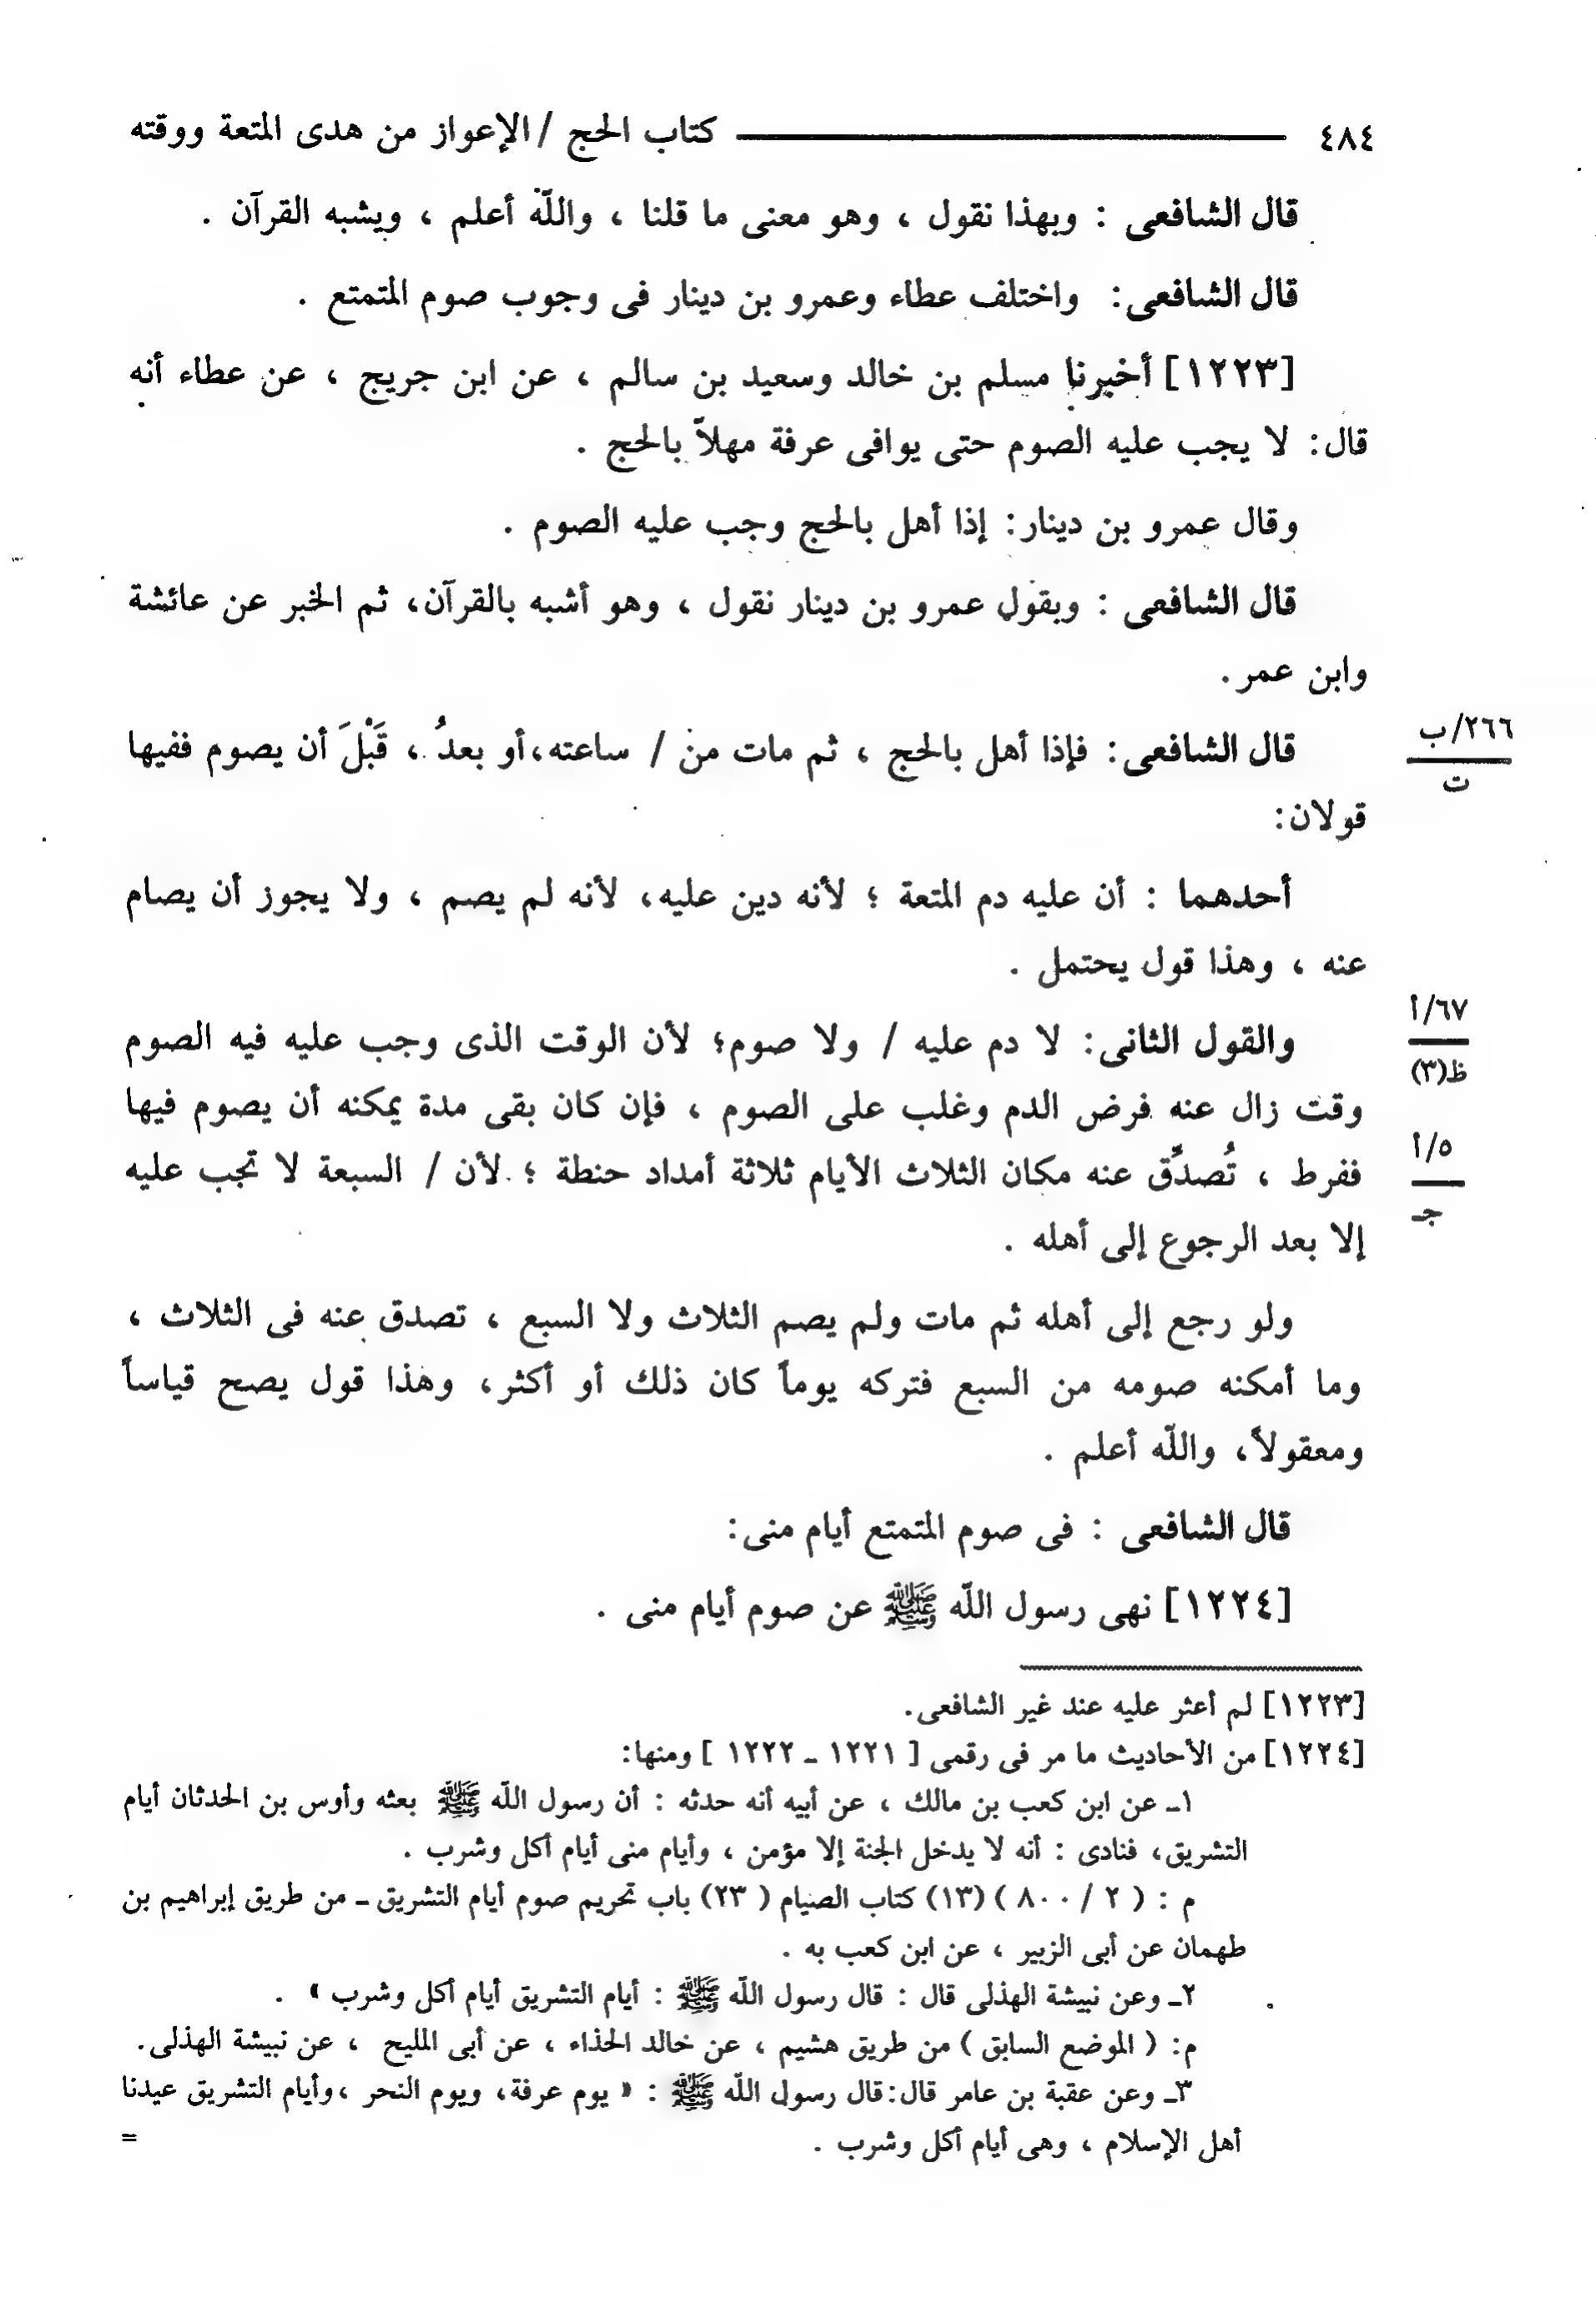 ٤٨٤ كتاب الحج / الإعواز من هدى المتعة ووقته
قال الشافعى : وبهذا نقول ، وهو معنى ما قلنا ، واللّه أعلم ، ويشبه القرآن .
قال الشافعى: واختلف عطاء وعمرو بن دينار فى وجوب صوم المتمتع .
[١٢٢٣] أخبرنا مسلم بن خالد وسعيد بن سالم ، عن ابن جريج ، عن عطاء أنه
قال: لا يجب عليه الصوم حتى يوافى عرفة مهلاً بالحج .
وقال عمرو بن دينار: إذا أهل بالحج وجب عليه الصوم .
قال الشافعى : وبقول عمرو بن دينار نقول ، وهو أشبه بالقرآن، ثم الخبر عن عائشة
وابن عمر.
قال الشافعى: فإذا أهل بالحج ، ثم مات من / ساعته،أو بعدُ ، قَبْلَ أن يصوم ففيها
٢٦٦/ب
ت
قولان:
أحدهما : أن عليه دم المتعة ؛ لأنه دين عليه، لأنه لم يصم ، ولا يجوز أن يصام
عنه ، وهذا قول يحتمل .
٦٧/أ
ظ(٣)
والقول الثانى: لا دم عليه / ولا صوم؛ لأن الوقت الذى وجب عليه فيه الصوم
وقت زال عنه فرض الدم وغلب على الصوم ، فإن كان بقى مدة يمكنه أن يصوم فيها
٥/أ
جـ
ففرط ، تُصدِّق عنه مكان الثلاث الأيام ثلاثة أمداد حنطة ؛ لأن / السبعة لا تجب عليه
إلا بعد الرجوع إلى أهله .
ولو رجع إلى أهله ثم مات ولم يصم الثلاث ولا السبع ، تصدق عنه فى الثلاث ،
وما أمكنه صومه من السبع فتركه يوماً كان ذلك أو أكثر، وهذا قول يصح قياساً
ومعقولاً، واللّه أعلم .
قال الشافعى : فى صوم المتمتع أيام منى:
[١٢٢٤] نهى رسول اللّه ﷺ عن صوم أيام منى .
[١٢٢٣] لم أعثر عليه عند غير الشافعى.
[١٢٢٤] من الأحاديث ما مر فى رقمى [ ١٢٢١ ـ ١٢٢٢ ] ومنها:
١ـ عن ابن كعب بن مالك ، عن أبيه أنه حدثه : أن رسول اللّه ﷺ بعثه وأوس بن الحدثان أيام
التشريق، فنادى : أنه لا يدخل الجنة إلا مؤمن ، وأيام منى أيام أكل وشرب .
م : ( ٢ / ٨٠٠ ) (١٣) كتاب الصيام ( ٢٣) باب تحريم صوم أيام التشريق ـ من طريق إبراهيم بن
طهمان عن أبى الزبير ، عن ابن كعب به .
٢ـ وعن نبيشة الهذلى قال : قال رسول اللّه ﷺ : أيام التشريق أيام أكل وشرب » .
م: ( الموضع السابق ) من طريق هشيم ، عن خالد الحذاء ، عن أبى المليح ، عن نبيشة الهذلى.
٣ـ وعن عقبة بن عامر قال:قال رسول اللّه ﷺ : « يوم عرفة، ويوم النحر ،وأيام التشريق عيدنا
أهل الإسلام ، وهى أيام أكل وشرب . =